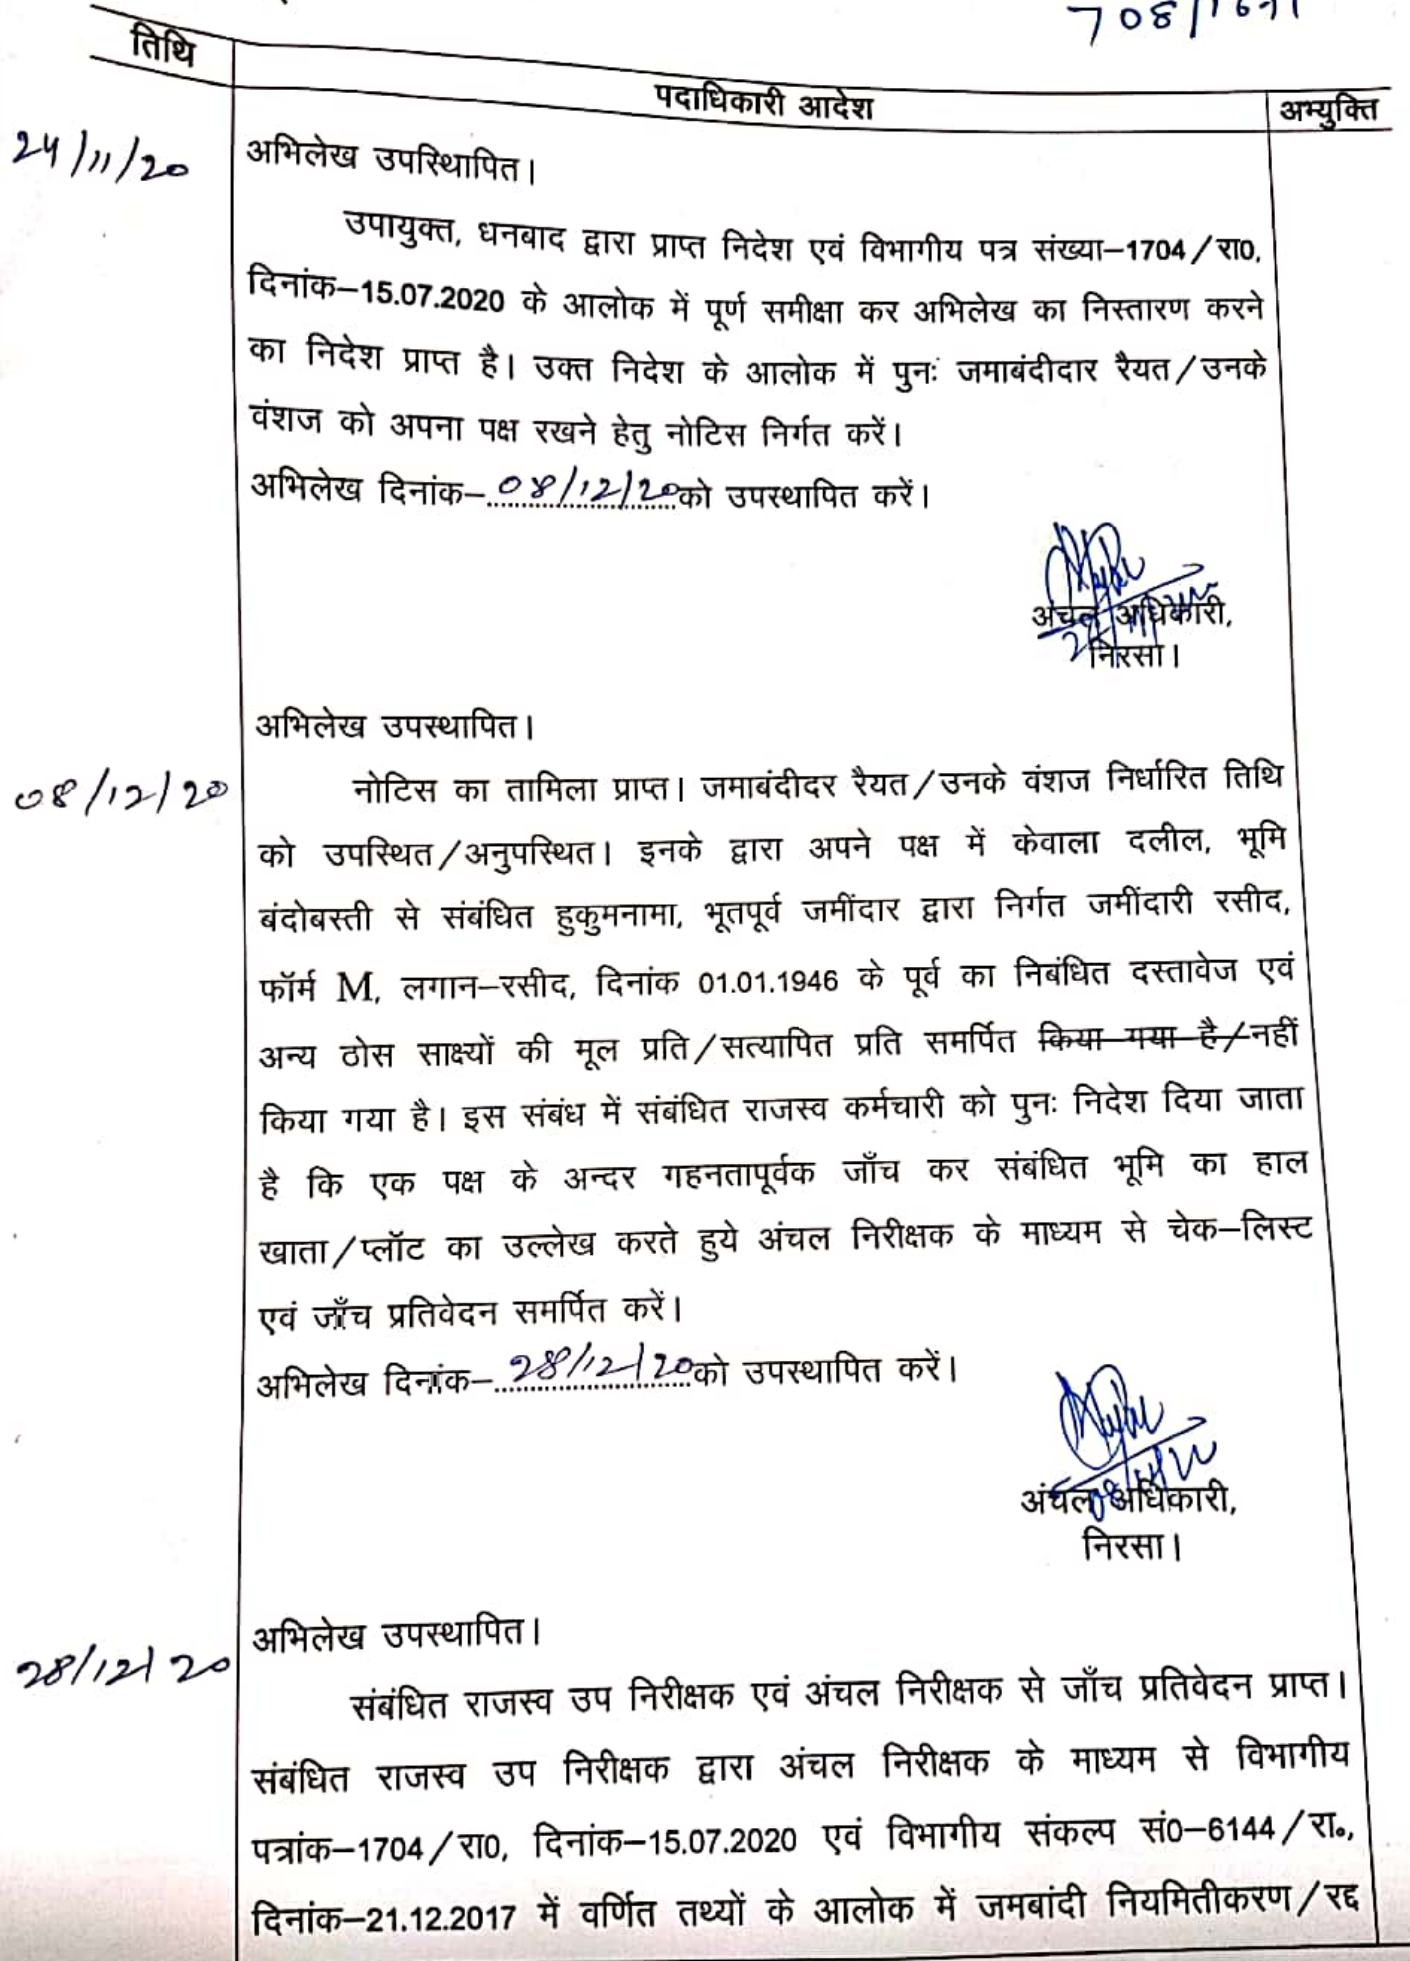 708/
तिथि
पदाधिकारी आदेश
अभ्युक्ति
24/11/20
अभिलेख उपस्थिापित।
उपायुक्त, धनबाद द्वारा प्राप्त निदेश एवं विभागीय पत्र संख्या–1704/रा0,
दिनांक–15.07.2020 के आलोक में पूर्ण समीक्षा कर अभिलेख का निस्तारण करने
का निदेश प्राप्त है। उक्त निदेश के आलोक में पुनः जमाबंदीदार रैयत/उनके
वंशज को अपना पक्ष रखने हेतु नोटिस निर्गत करें।
अभिलेख दिनांक–08/12/20को उपस्थापित करें।
अंचल अधिकारी,
निरसा।
अभिलेख उपस्थापित।
08/12/20
नोटिस का तामिला प्राप्त। जमाबंदीदर रैयत/उनके वंशज निर्धारित तिथि
को उपस्थित/अनुपस्थित। इनके द्वारा अपने पक्ष में केवाला दलील, भूमि
बंदोबस्ती से संबंधित हुकुमनामा, भूतपूर्व जमींदार द्वारा निर्गत जमींदारी रसीद,
फॉर्म M, लगान–रसीद, दिनांक 01.01.1946 के पूर्व का निबंधित दस्तावेज एवं
अन्य ठोस साक्ष्यों की मूल प्रति/सत्यापित प्रति समर्पित किया गया है/नहीं
किया गया है। इस संबंध में संबंधित राजस्व कर्मचारी को पुनः निदेश दिया जाता
है कि एक पक्ष के अन्दर गहनतापूर्वक जाँच कर संबंधित भूमि का हाल
खाता/प्लॉट का उल्लेख करते हुये अंचल निरीक्षक के माध्यम से चेक–लिस्ट
एवं जाँच प्रतिवेदन समर्पित करें।
अभिलेख दिनांक–28/12/20को उपस्थापित करें।
अंचल अधिकारी,
निरसा।
अभिलेख उपस्थापित।
28/12/20
संबंधित राजस्व उप निरीक्षक एवं अंचल निरीक्षक से जाँच प्रतिवेदन प्राप्त।
संबंधित राजस्व उप निरीक्षक द्वारा अंचल निरीक्षक के माध्यम से विभागीय
पत्रांक–1704/रा0, दिनांक–15.07.2020 एवं विभागीय संकल्प सं0–6144/रा०,
दिनांक–21.12.2017 में वर्णित तथ्यों के आलोक में जमबांदी नियमितीकरण/रद्द